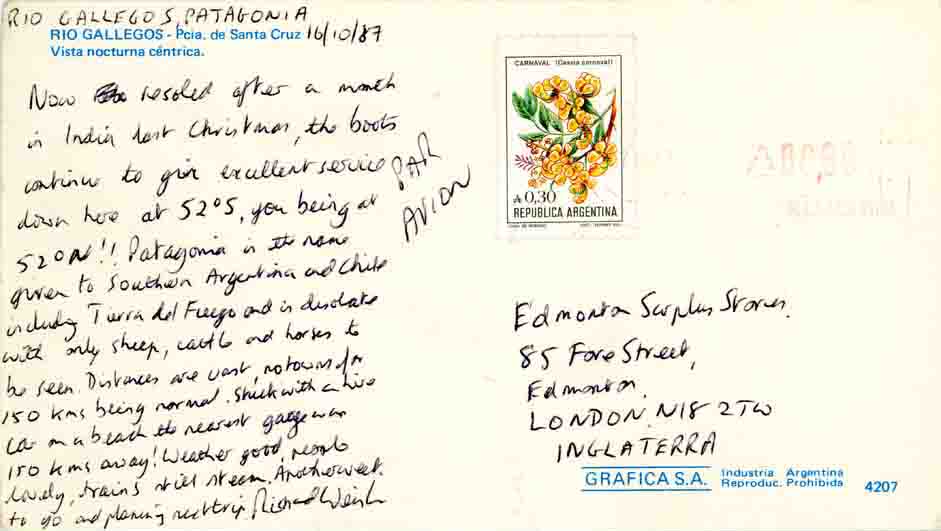 RIO GALLEGOS, PATAGONIA
RIO GALLEGOS - Pcia. de Santa Cruz 16/10/87
Vista nocturna céntrica.
Now resoled after a month
in India last Christmas, the boots
continue to give excellent service
down here at 52°S, you being at
52°N!! Patagonia is the name
given to Southern Argentina and Chile
including Tierra del Fuego and is desolate
with only sheep, cattle and horses to
be seen. Distances are vast, no towns for
150 kms being normal. Stuck with a hire
car on a beach the nearest garage was
150 kms away! Weather good, people
lovely, trains still steam. Another week
to go and planning next trip. Richard
PAR
AVION
CARNAVAL (Cassia carnaval)
A 0,30
REPUBLICA ARGENTINA
Edmonton Surplus Stores,
85 Fore Street,
Edmonton,
LONDON, N18 2TW
INGLATERRA
GRAFICA S.A. Industria Argentina
Reproduc. Prohibida 4207